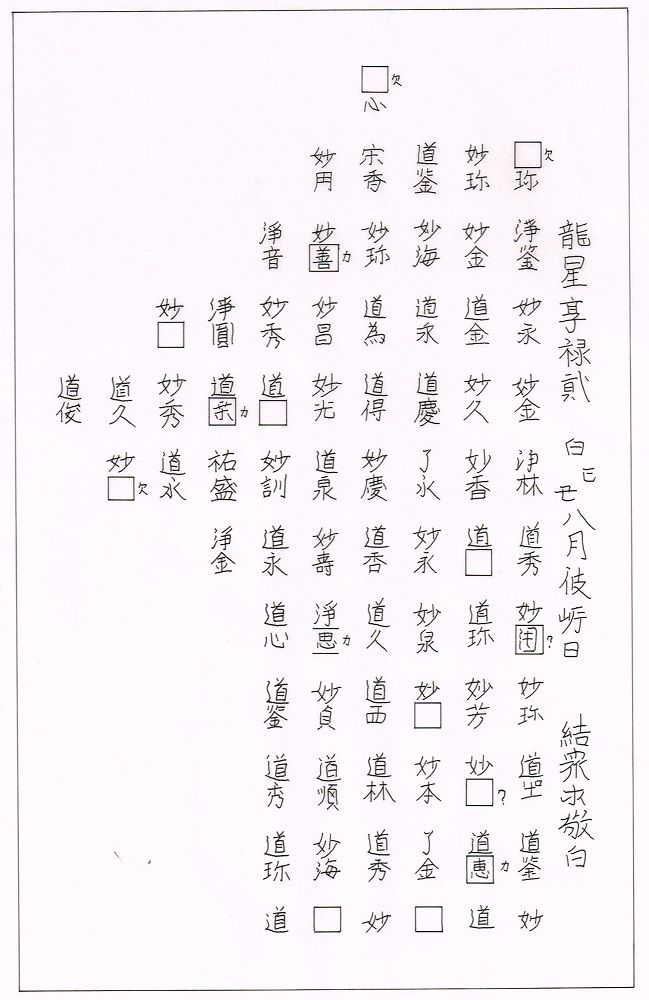 龍星享禄貳 白 己丑 八月彼岸日 結衆ホ敬白
□欠珎 浄鋻 妙永 妙金 浄林 道秀 妙 ? 妙珎 道 道鋻 妙
妙珎 妙金 道金 妙久 妙香 道□ 道珎 妙芳 妙□? 道惠カ 道
道鋻 妙海 道永 道慶 了永 妙永 妙泉 妙□ 妙本 了金 □
□欠心 宗香 妙珎 道為 道得 妙慶 道香 道久 道西 道林 道秀 妙
妙円 妙善カ 妙昌 妙光 道泉 妙壽 淨恵カ 妙貞 道順 妙海 □
淨音 妙秀 道□ 妙訓 道永 道心 道鋻 道秀 道珎 道
淨圓 道栄カ 祐盛 淨金
妙□ 妙秀 道永
道久 妙□欠
道俊